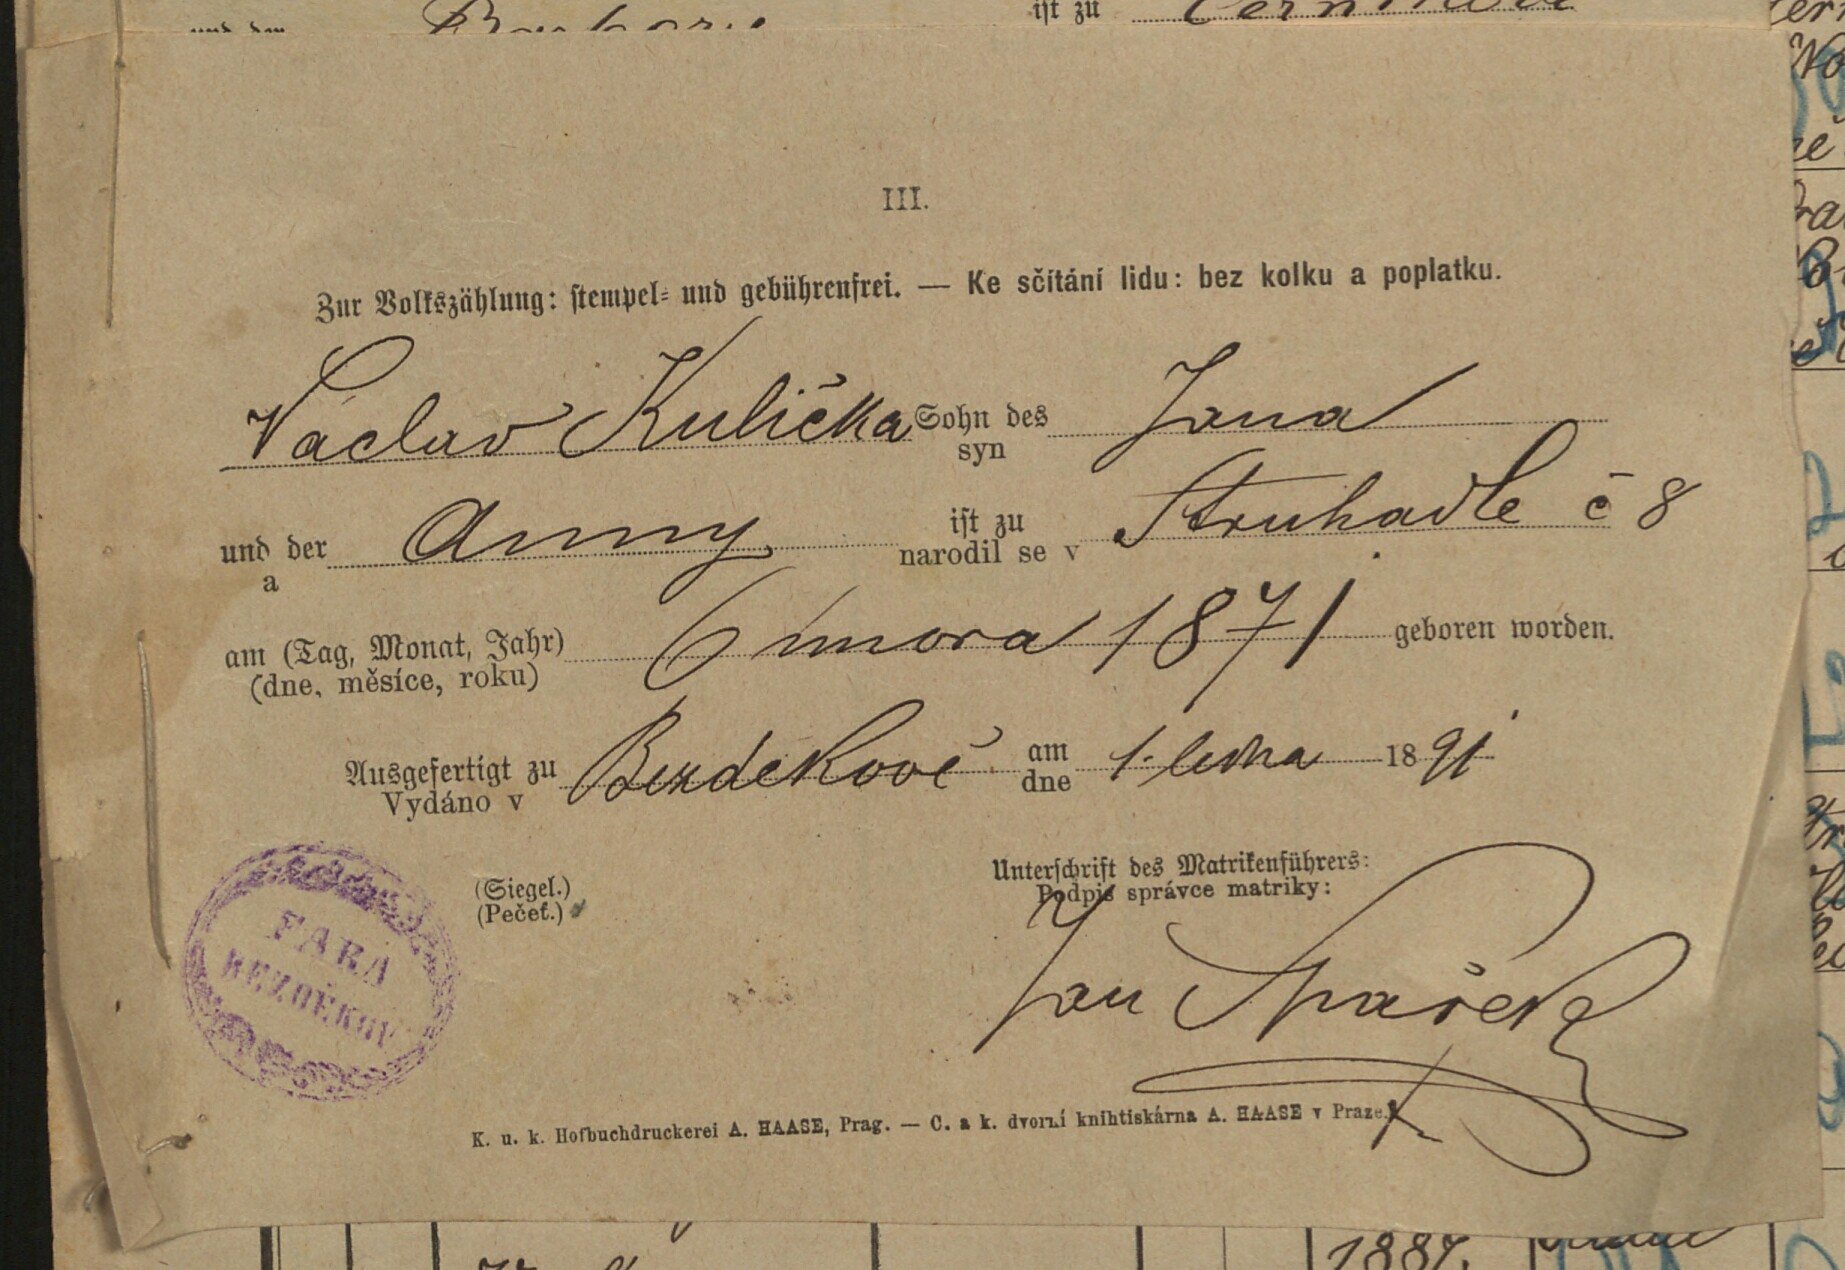 und der Barbory ist zu
III.
Zur Volkszählung: stempel- und gebührenfrei. — Ke sčítání lidu: bez kolku a poplatku.
Václav Kulička Sohn des Jana
syn
und der Anny ist zu Struhadle č 8
a narodil se v
am (Tag, Monat, Jahr) 6 února 1871 geboren worden.
(dne, měsíce, roku)
Ausgefertigt zu Bezděkově am 1. ledna 1891
Vydáno v dne
(Siegel.) Unterschrift des Matrikenführers:
(Pečeť.) Podpis správce matriky:
FARA
BEZDĚKOV
Jan Spařek
K. u. k. Hofbuchdruckerei A. HAASE, Prag. — C. a k. dvorní knihtiskárna A. HAASE v Praze.
1887.